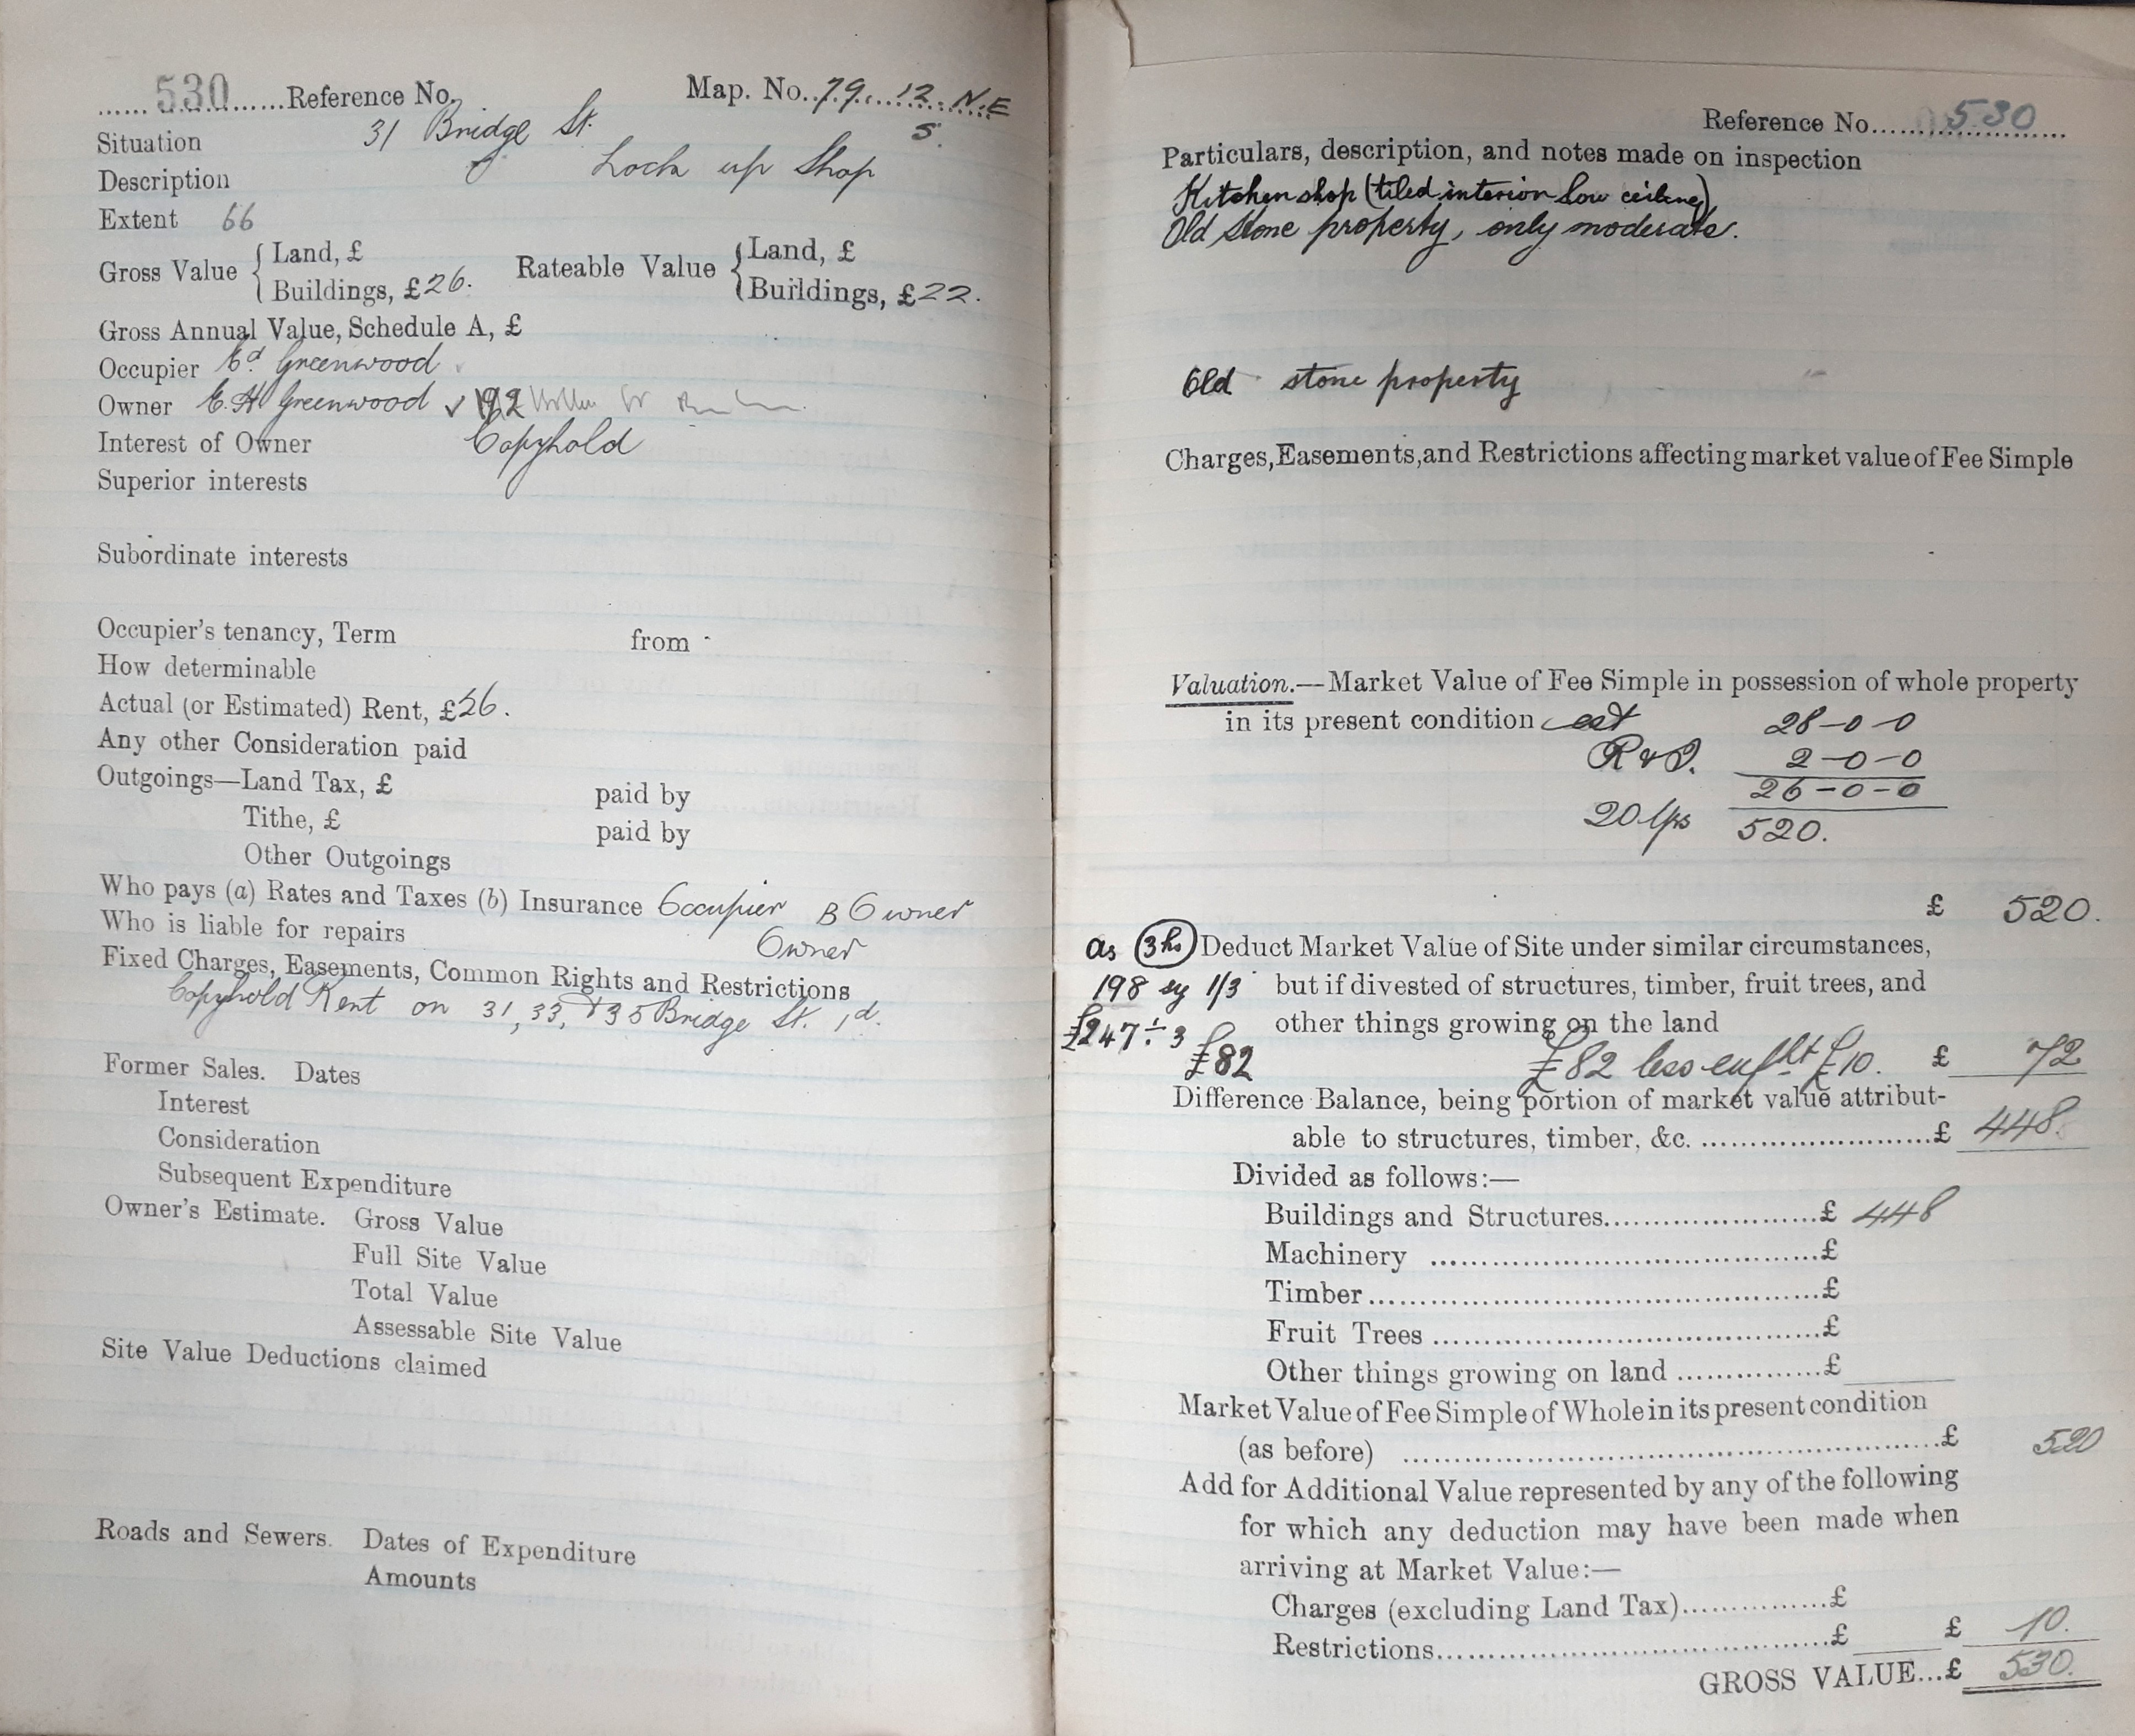 530 Reference No. Map. No. 79. 12. N.E
S.
Situation 31 Bridge St.
Description Lock up Shop
Extent 66
Gross Value { Land, £ Rateable Value { Land, £
Buildings, £26. Buildings, £22.
Gross Annual Value, Schedule A, £
Occupier Ed Greenwood
Owner E. H. Greenwood 192
Interest of Owner Copyhold
Superior interests
Subordinate interests
Occupier's tenancy, Term from
How determinable
Actual (or Estimated) Rent, £26.
Any other Consideration paid
Outgoings—Land Tax, £ paid by
Tithe, £ paid by
Other Outgoings
Who pays (a) Rates and Taxes (b) Insurance Occupier B Owner
Who is liable for repairs Owner
Fixed Charges, Easements, Common Rights and Restrictions
Copyhold Rent on 31, 33, & 35 Bridge St. 1d.
Former Sales. Dates
Interest
Consideration
Subsequent Expenditure
Owner's Estimate. Gross Value
Full Site Value
Total Value
Assessable Site Value
Site Value Deductions claimed
Roads and Sewers. Dates of Expenditure
Amounts
Reference No. 530
Particulars, description, and notes made on inspection
Kitchen shop (tiled interior low ceiling)
Old stone property, only moderate.
Old stone property
Charges, Easements, and Restrictions affecting market value of Fee Simple
Valuation.—Market Value of Fee Simple in possession of whole property
in its present condition est 28-0-0
R & I. 2-0-0
26-0-0
20 yps 520.
£ 520.
as 3 hs Deduct Market Value of Site under similar circumstances,
198 sy 1/3 but if divested of structures, timber, fruit trees, and
£247÷3 other things growing on the land
£82 £82 less enfht £10. £ 72
Difference Balance, being portion of market value attribut-
able to structures, timber, &c. £ 448.
Divided as follows:—
Buildings and Structures £ 448
Machinery £
Timber £
Fruit Trees £
Other things growing on land £
Market Value of Fee Simple of Whole in its present condition
(as before) £ 520
Add for Additional Value represented by any of the following
for which any deduction may have been made when
arriving at Market Value:—
Charges (excluding Land Tax) £
Restrictions £ £ 10.
GROSS VALUE...£ 530.